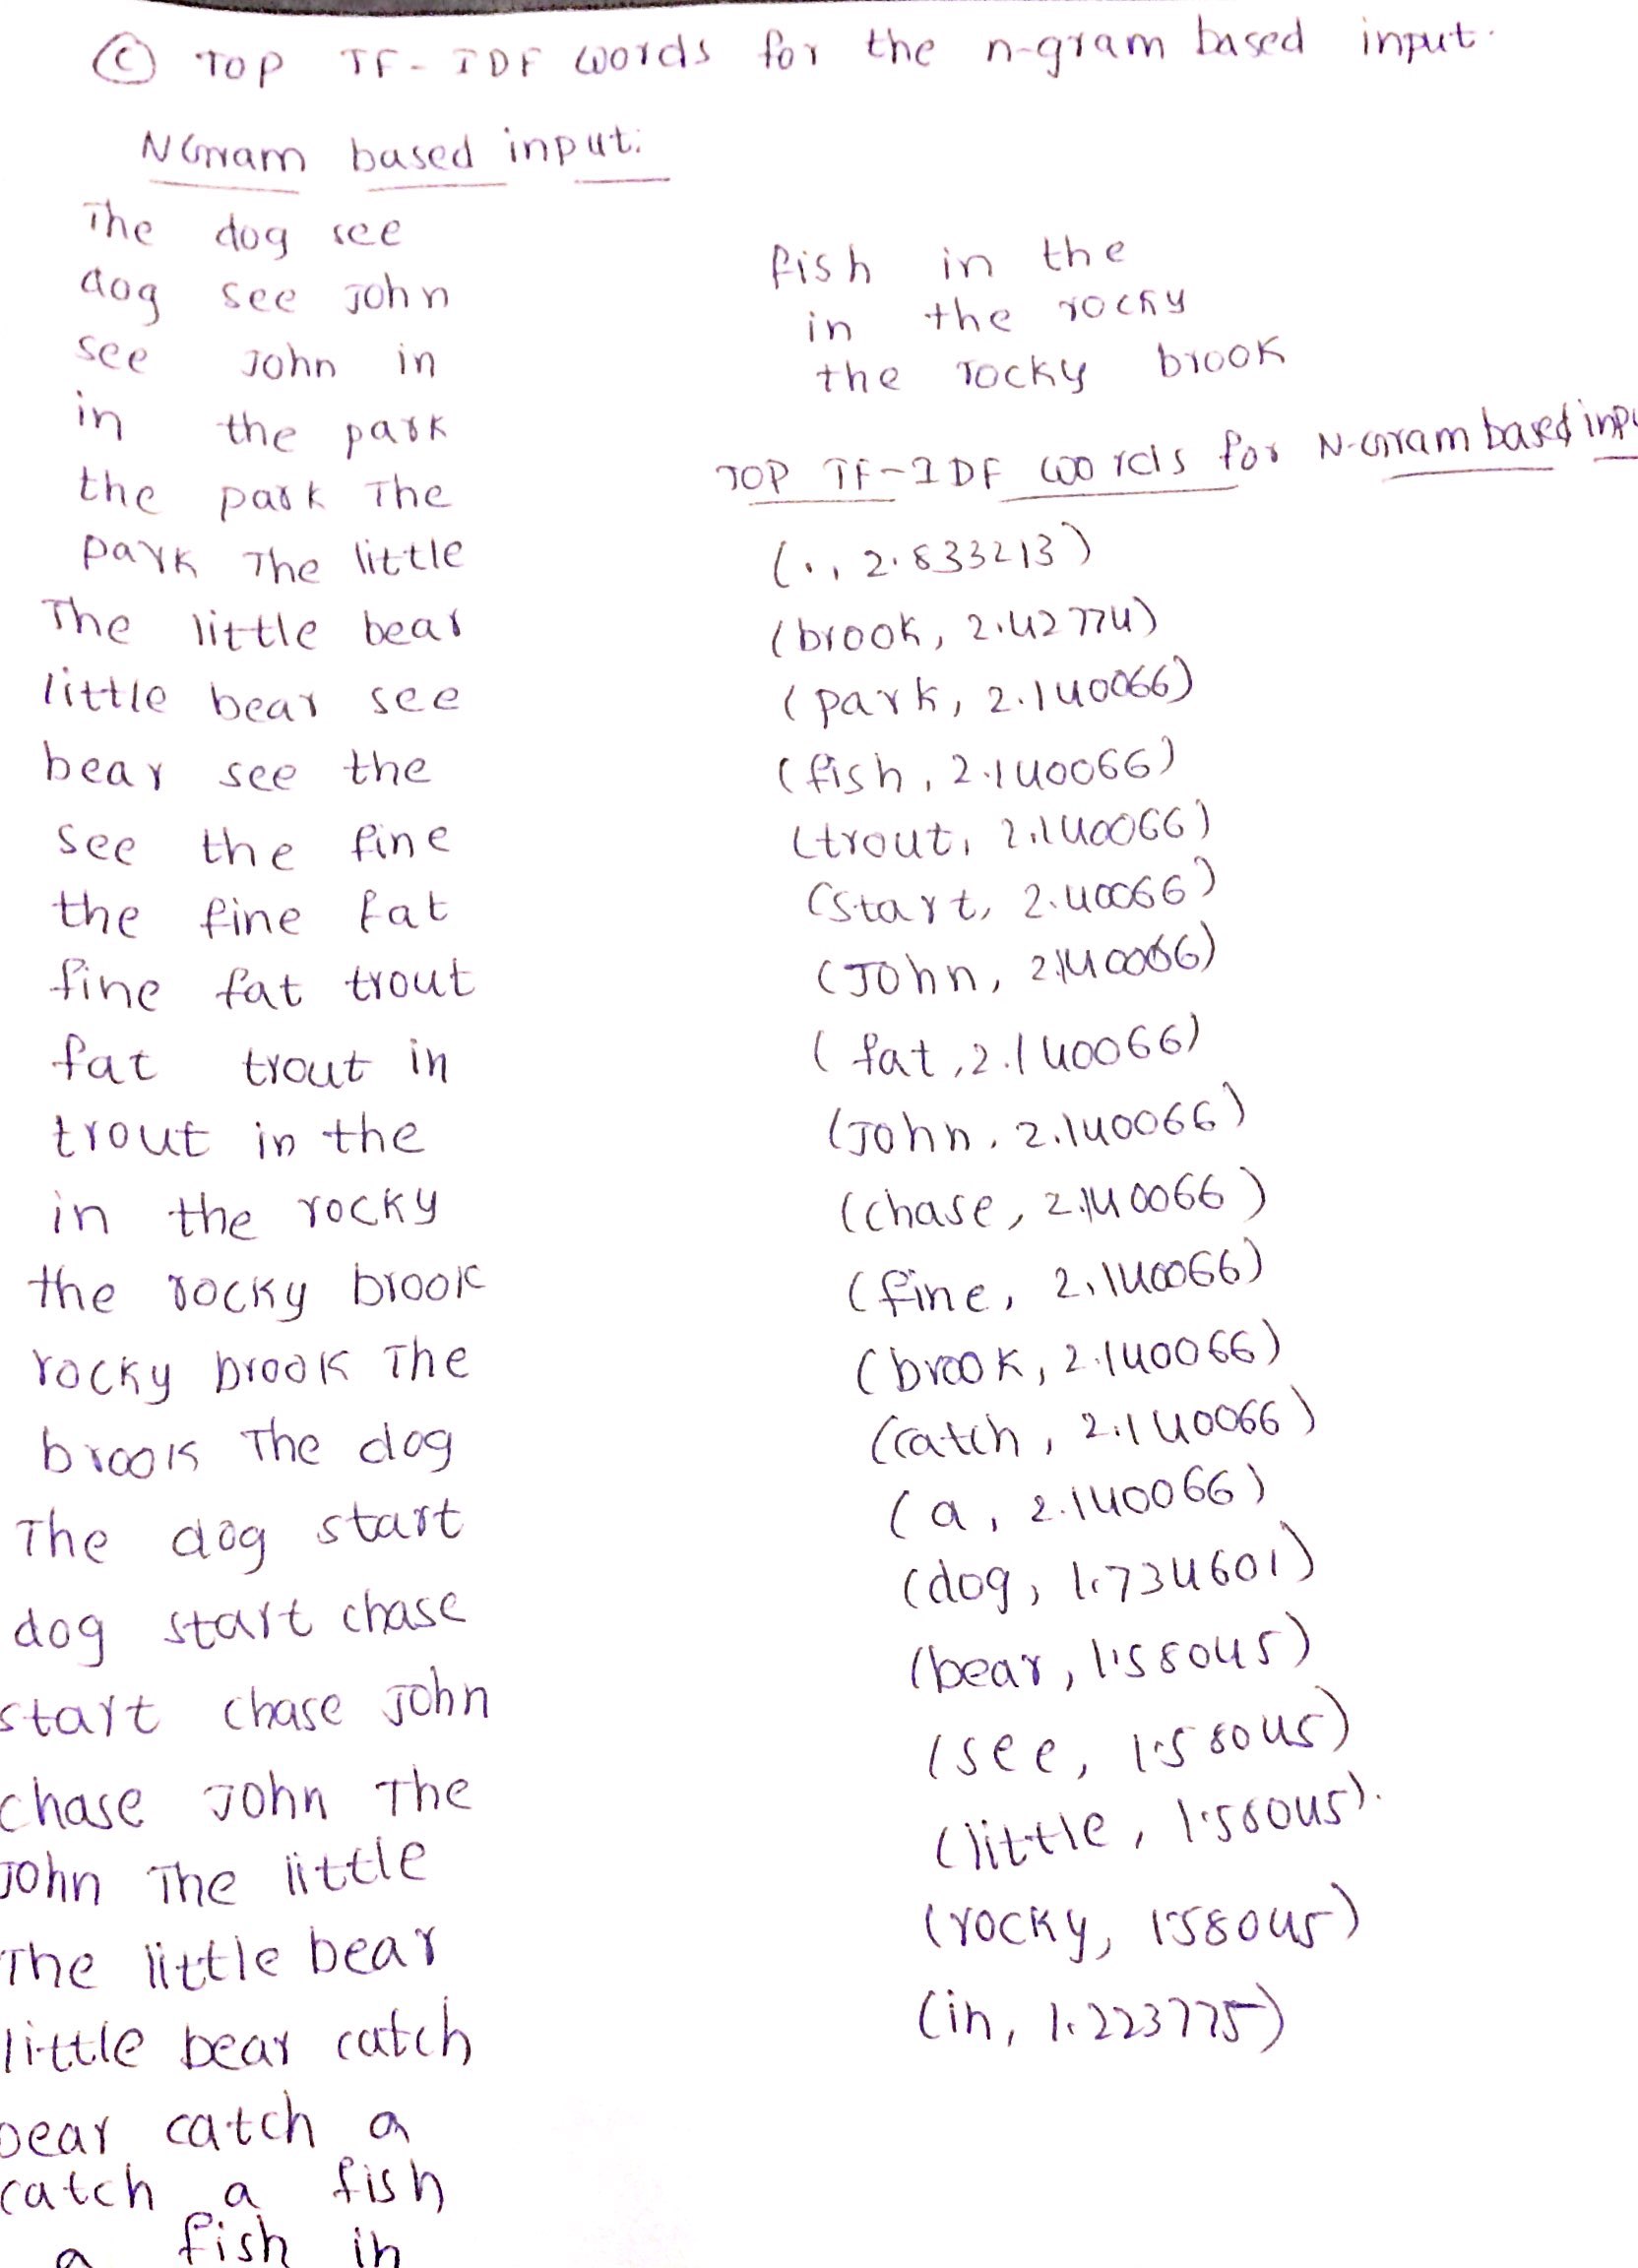 (C) TOP TF-IDF words for the n-gram based input.
NGram based input:
The dog see
dog see John
see John in
in the park
the park The
park The little
The little bear
little bear see
bear see the
see the fine
the fine fat
fine fat trout
fat trout in
trout in the
in the rocky
the rocky brook
rocky brook The
brook The dog
The dog start
dog start chase
start chase John
chase John The
John The little
The little bear
little bear catch
bear catch a
catch a fish
a fish in
fish in the
in the rocky
the rocky brook
TOP TF-IDF words for N-Gram based
(., 2.833213)
(brook, 2.42774)
(park, 2.140066)
(fish, 2.140066)
(trout, 2.140066)
(start, 2.40066)
(John, 2.140066)
(fat, 2.140066)
(John, 2.140066)
(chase, 2.140066)
(fine, 2.140066)
(brook, 2.140066)
(catch, 2.140066)
(a, 2.140066)
(dog, 1.734601)
(bear, 1.58045)
(see, 1.58045)
(little, 1.58045).
(rocky, 1.58045)
(in, 1.223775)